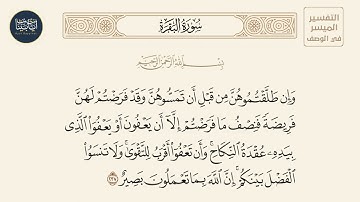 التفسير
الميسر
في الوصف
سُورَةُ البَقَرَةِ
بِسْمِ اللَّهِ الرَّحْمَٰنِ الرَّحِيمِ
وَإِن طَلَّقْتُمُوهُنَّ مِن قَبْلِ أَن تَمَسُّوهُنَّ وَقَدْ فَرَضْتُمْ لَهُنَّ
فَرِيضَةً فَنِصْفُ مَا فَرَضْتُمْ إِلَّا أَن يَعْفُونَ أَوْ يَعْفُوَا۟ الَّذِي
بِيَدِهِۦ عُقْدَةُ النِّكَاحِ ۚ وَأَن تَعْفُوٓا۟ أَقْرَبُ لِلتَّقْوَىٰ ۚ وَلَا تَنسَوُا۟
الْفَضْلَ بَيْنَكُمْ ۚ إِنَّ اللَّهَ بِمَا تَعْمَلُونَ بَصِيرٌ ٢٣٧